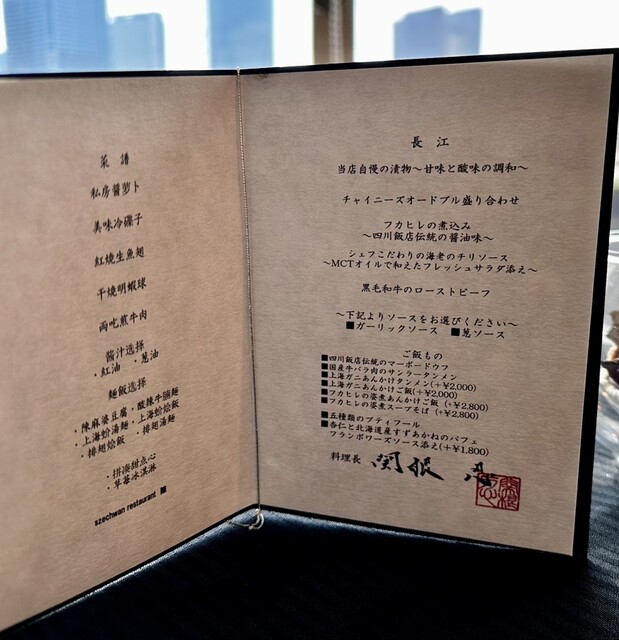 菜譜
私房醬萝卜
美味冷碟子
紅燒生魚翅
干燒明蝦球
両吃煎牛肉
醬汁选择
・紅油 ・葱油
麺飯选择
・陳麻婆豆腐・酸辣牛腩麺
・上海蚧湯麺・上海蚧烩飯
・排翅烩飯 ・排翅湯麺
・拼湊甜点心
・草莓冰淇淋
szechwan restaurant
長江
当店自慢の漬物～甘味と酸味の調和～
チャイニーズオードブル盛り合わせ
フカヒレの煮込み
～四川飯店伝統の醤油味～
シェフこだわりの海老のチリソース
～MCTオイルで和えたフレッシュサラダ添え～
黒毛和牛のローストビーフ
～下記よりソースをお選びください～
■ガーリックソース ■葱ソース
ご飯もの
■四川飯店伝統のマーボードウフ
■国産牛バラ肉のサンラータンメン
■上海ガニあんかけタンメン(＋¥2,000)
■上海ガニあんかけご飯(＋¥2,000)
■フカヒレの姿煮あんかけご飯(＋¥2,800)
■フカヒレの姿煮スープそば(＋¥2,800)
■五種類のプティフール
■杏仁と北海道産すずあかねのパフェ
フランボワーズソース添え(＋¥1,800)
料理長 関根